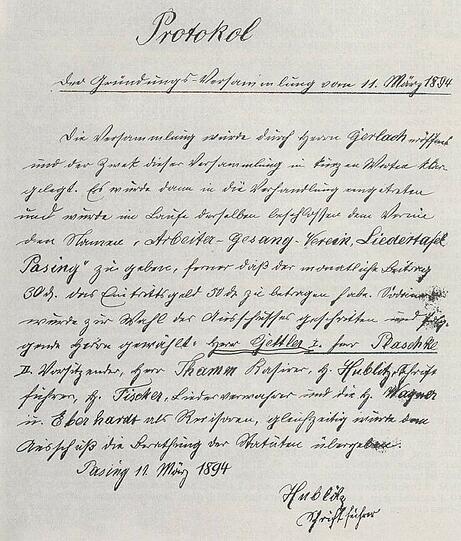 Protokol
der Gründungs-Versammlung vom 11. März 1894
Die Versammlung wurde durch Herrn Gerlach eröffnet
und der Zwek dieser Versammlung in kurzen Worten klar
gelegt. Es wurde dann in die Verhandlung eingetreten
und wurde im Laufe derselben beschlossen dem Verein
den Namen „Arbeiter-Gesang-Verein, Liedertafel
Pasing" zu geben, ferner daß der monatliche Beitrag
30 d. das Eintrittsgeld 50 d. zu betragen habe. Sodann
wurde zur Wahl des Ausschußes geschritten und folg
gende Herrn gewählt: Herr Gettler I. Herr Plaschke
II. Vorsitzender, Herr Thamm Kasirer, H. Hublitz, Schrift
führer, H. Fischer, Liederverwahrer und die H. Wagner
u. Eberhardt als Revisoren, gleichzeitig wurde dem
Ausschuß die Berathung der Statuten übergeben.
Pasing 11. März 1894
Hublitz
Schriftführer